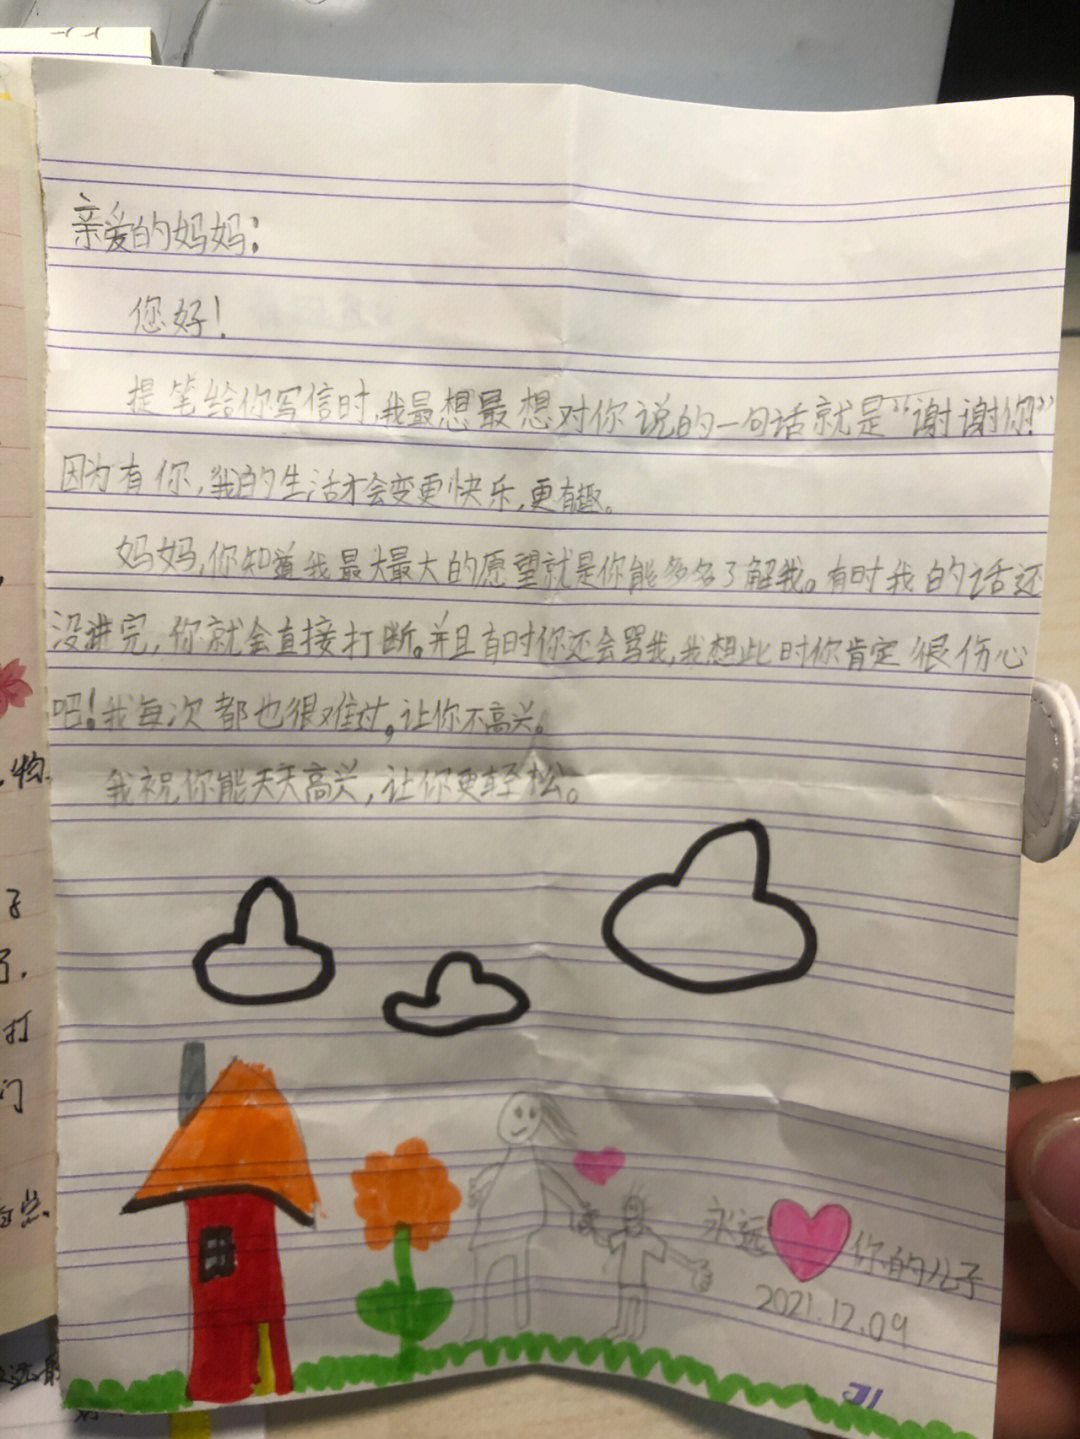 亲爱的妈妈:
您好!
提笔给你写信时,我最想最想对你说的一句话就是“谢谢你!”
因为有你,我的生活才会变更快乐,更有趣。
妈妈,你知道我最大最大的愿望就是你能多多了解我。有时我的话还
没讲完,你就会直接打断。并且有时你还会骂我,我想此时你肯定很伤心
吧!我每次都也很难过。让你不高兴。
我祝你能天天高兴,让你更轻松。
永远 你的儿子
2021.12.09